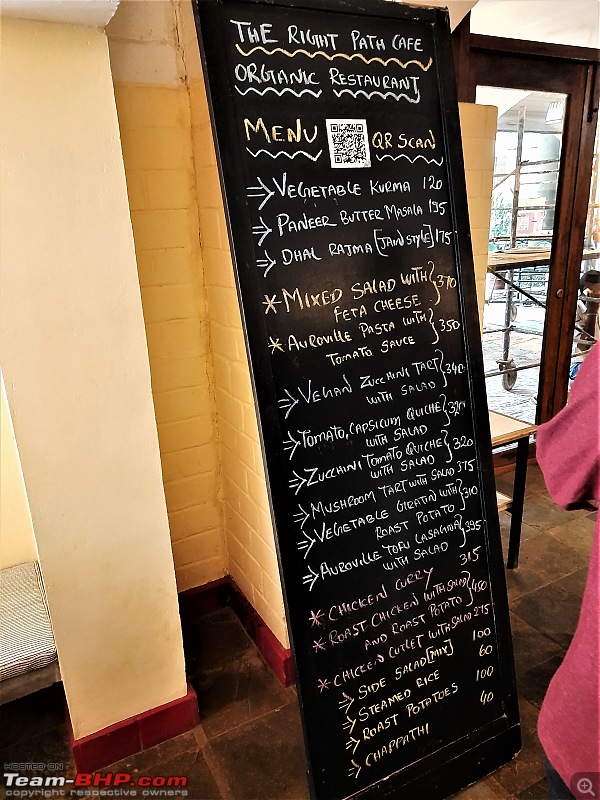 THE RIGHT PATH CAFE
ORGANIC RESTAURANT
MENU QR SCAN
⇒ VEGETABLE KURMA 120
⇒ PANEER BUTTER MASALA 195
⇒ DHAL RAJMA [JAIN STYLE] 175
* MIXED SALAD WITH } 370
FETA CHEESE
* AUROVILLE PASTA WITH } 350
TOMATO SAUCE
⇒ VEGAN ZUCCHINI TART } 340
WITH SALAD
⇒ TOMATO, CAPSICUM QUICHE } 320
WITH SALAD
⇒ ZUCCHINI TOMATO QUICHE } 320
WITH SALAD
⇒ MUSHROOM TART WITH SALAD 375
⇒ VEGETABLE GRATIN WITH } 310
ROAST POTATO
⇒ AUROVILLE TOFU LASAGNA } 395
WITH SALAD
* CHICKEN CURRY 315
* ROAST CHICKEN WITH SALAD } 450
AND ROAST POTATO
* CHICKEN CUTLET WITH SALAD 275
⇒ SIDE SALAD [MIX] 100
⇒ STEAMED RICE 60
⇒ ROAST POTATOES 100
⇒ CHAPPATHI 40
HOSTED ON
Team-BHP.com
copyright respective owners